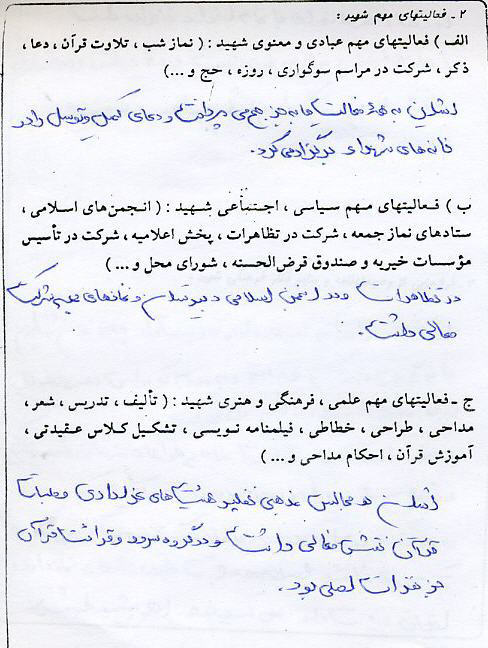 ۲ - فعالیتهای مهم شهید :
الف ) فعالیتهای مهم عبادی و معنوی شهید : ( نماز شب ، تلاوت قرآن ، دعا ،
ذکر ، شرکت در مراسم سوگواری ، روزه ، حج و ...)
ایشان به همهٔ فعالیت‌ها به جز حج می پرداخت و دعای کمیل و توسل را در
خانه‌های شهداء برگزار می‌کرد.
ب ) فعالیتهای مهم سیاسی ، اجتماعی شهید : ( انجمن‌های اسلامی ،
ستادهای نماز جمعه ، شرکت در تظاهرات ، پخش اعلامیه ، شرکت در تأسیس
مؤسسات خیریه و صندوق قرض‌الحسنه ، شورای محل و ... )
در تظاهرات و در انجمن اسلامی دبیرستان و نمازهای جمعه شرکت
فعالی داشت.
ج - فعالیتهای مهم علمی ، فرهنگی و هنری شهید : ( تألیف ، تدریس ، شعر ،
مداحی ، طراحی ، خطاطی ، فیلمنامه نویسی ، تشکیل کلاس عقیدتی ،
آموزش قرآن ، احکام مداحی و ... )
ایشان در مجالس مذهبی نظیر هیئت‌های عزاداری و جلسات
قرآن نقش فعالی داشت و در گروه سرود و قرائت قرآن
جزء نفرات اصلی بود.